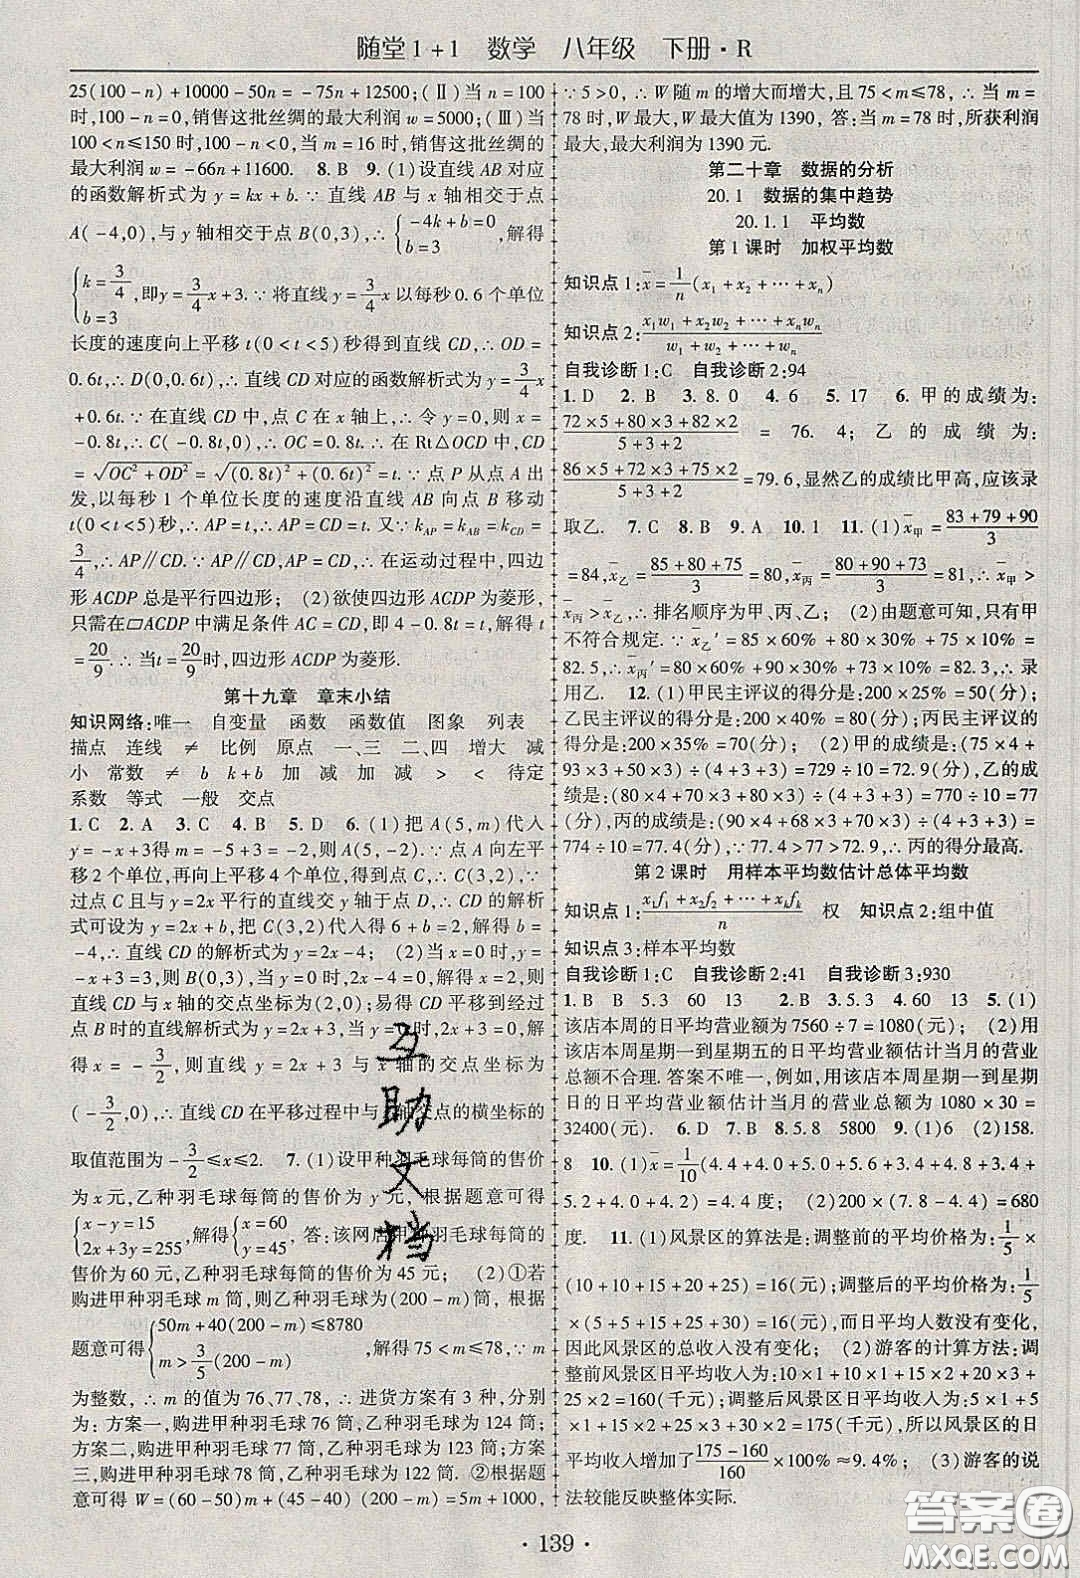 随堂1+1 数学 八年级 下册·R
25(100-n)+10000-50n=-75n+12500;(Ⅱ)当 n=100
时,100-n=0,销售这批丝绸的最大利润 w=5000;(Ⅲ)当
100<n≤150 时,100-n<0,∴当 m=16 时,销售这批丝绸的
最大利润 w=-66n+11600. 8.B 9.(1)设直线AB对应
的函数解析式为 y=kx+b.∵直线 AB 与 x 轴相交于点
A(-4,0),与 y 轴相交于点 B(0,3),∴{-4k+b=0 b=3,解得
{k=3/4 b=3,即y=3/4x+3.∵将直线y=3/4x 以每秒0.6个单位
长度的速度向上平移 t(0<t<5)秒得到直线 CD,∴OD=
0.6t,∴D(0,0.6t),∴直线 CD 对应的函数解析式为 y=3/4x
+0.6t.∵在直线CD中,点 C 在 x 轴上,∴令 y=0,则 x=
-0.8t,∴C(-0.8t,0),∴OC=0.8t.∴在 Rt△OCD 中,CD
=√(OC²+OD²)=√((0.8t)²+(0.6t)²)=t.∵点 P 从点 A 出
发,以每秒 1 个单位长度的速度沿直线 AB 向点 B 移动
t(0<t<5)秒,∴AP=t,∴AP=CD=t.又∵k_AP=k_AB=k_CD=
3/4,∴AP∥CD.∵AP=CD,AP∥CD.∴在运动过程中,四边
形 ACDP 总是平行四边形; (2)欲使四边形 ACDP 为菱形,
只需在▱ACDP 中满足条件 AC=CD,即 4-0.8t=t,解得 t
=20/9.∴当t=20/9时,四边形 ACDP 为菱形.
第十九章 章末小结
知识网络:唯一 自变量 函数 函数值 图象 列表
描点 连线 ≠ 比例 原点 一、三 二、四 增大 减
小 常数 ≠ b k+b 加 减 加 减 > < 待定
系数 等式 一般 交点
1.C 2.A 3.C 4.B 5.D 6.(1)把 A(5,m)代入
y=-x+3得m=-5+3=-2,则 A(5,-2).∵点 A 向左平
移2个单位,再向上平移4个单位,得到点 C,∴C(3,2).∵
过点 C 且与 y=2x 平行的直线交 y 轴于点 D,∴CD 的解析
式可设为 y=2x+b,把 C(3,2)代入得 6+b=2,解得 b=
-4,∴直线 CD 的解析式为 y=2x-4; (2)当 x=0 时,y=
-x+3=3,则 B(0,3),当 y=0 时,2x-4=0,解得 x=2,则
直线 CD 与 x 轴的交点坐标为(2,0);易得 CD 平移到经过
点 B 时的直线解析式为 y=2x+3,当 y=0时,2x+3=0,解
得 x=-3/2,则直线 y=2x+3 与 x 轴的交点坐标为
(-3/2,0),∴直线 CD 在平移过程中与 轴交点的横坐标的
取值范围为-3/2≤x≤2. 7.(1)设甲种羽毛球每筒的售价
为 x 元,乙种羽毛球每筒的售价为 y 元, 根据题意可得
{x-y=15 2x+3y=255,解得{x=60 y=45, 答:该网店甲 羽毛球每筒的
售价为 60 元,乙种羽毛球每筒的售价为 45 元; (2)①若
购进甲种羽毛球 m 筒,则乙种羽毛球为(200-m)筒, 根据
题意可得{50m+40(200-m)≤8780 m>3/5(200-m),解得 75<m≤78,∵m
为整数,∴m 的值为 76、77、78,∴进货方案有 3 种,分别
为: 方案一,购进甲种羽毛球 76 筒,乙种羽毛球为 124 筒;
方案二,购进甲种羽毛球 77 筒,乙种羽毛球为 123 筒,方案
三,购进甲种羽毛球 78 筒,乙种羽毛球为 122 筒. ②根据题
意可得 W=(60-50)m+(45-40)(200-m)=5m+1000,
∵5>0,∴W 随 m 的增大而增大,且 75<m≤78,∴当 m=
78 时,W 最大,W 最大值为 1390, 答:当 m=78 时,所获利润
最大,最大利润为 1390 元.
第二十章 数据的分析
20.1 数据的集中趋势
20.1.1 平均数
第1课时 加权平均数
知识点1:x̄=1/n(x₁+x₂+⋯+xₙ)
知识点2:(x₁w₁+x₂w₂+⋯+xₙwₙ)/(w₁+w₂+⋯+wₙ)
自我诊断1:C 自我诊断2:94
1.D 2.B 3.8.0 4.6 5.17 6.甲的成绩为:
(72×5+80×3+82×2)/(5+3+2) = 76.4;乙的成绩为:
(86×5+72×3+75×2)/(5+3+2)=79.6,显然乙的成绩比甲高,应该录
取乙. 7.C 8.B 9.A 10.1 11.(1)x̄甲=(83+79+90)/3
=84,x̄乙=(85+80+75)/3=80,x̄丙=(80+90+73)/3=81,∴x̄甲>
x̄丙>x̄乙,∴排名顺序为甲、丙、乙; (2)由题意可知,只有甲
不符合规定.∵x̄乙′=85×60%+80×30%+75×10%=
82.5,x̄丙′=80×60%+90×30%+73×10%=82.3,∴录
用乙. 12.(1)甲民主评议的得分是:200×25%=50(分);
乙民主评议的得分是:200×40%=80(分);丙民主评议的
得分是:200×35%=70(分); (2)甲的成绩是:(75×4+
93×3+50×3)÷(4+3+3)=729÷10=72.9(分),乙的成
绩是:(80×4+70×3+80×3)÷(4+3+3)=770÷10=77
(分),丙的成绩是:(90×4+68×3+70×3)÷(4+3+3)=
774÷10=77.4(分),∵77.4>77>72.9,∴丙的得分最高.
第2课时 用样本平均数估计总体平均数
知识点1:(x₁f₁+x₂f₂+⋯+xₖfₖ)/n 权 知识点2:组中值
知识点3:样本平均数
自我诊断1:C 自我诊断2:41 自我诊断3:930
1.B B 5.3 60 13 2.B 3.5.3 4.60 13 5.(1)
该店本周的日平均营业额为 7560÷7=1080(元); (2)用
该店本周星期一到星期五的日平均营业额估计当月的营业
总额不合理. 答案不唯一,例如,用该店本周星期一到星期
日的日平均营业额估计当月的营业总额为 1080×30=
32400(元). 6.D 7.B 8.5.8 5800 9.(1)6 (2)158.
8 10.(1)x̄=1/10(4.4+4.0+5.0+5.6+3.4+4.8+3.4+
5.2+4.0+4.2)=4.4 度; (2)200×(7.8-4.4)=680
度. 11.(1)风景区的算法是:调整前的平均价格为:1/5×
(10+10+15+20+25)=16(元);调整后的平均价格为:1/5
×(5+5+15+25+30)=16(元),而日平均人数没有变化,
因此风景区的总收入没有变化; (2)游客的计算方法:调
整前风景区日平均收入为:10×1+10×1+15×2+20×3+
25×2=160(千元);调整后风景区日平均收入为:5×1+5
×1+15×2+25×3+30×2=175(千元),所以风景区的日
平均收入增加了(175-160)/160×100%≈9.4%; (3)游客的说
法较能反映整体实际.
互助文档
·139·
答案圈
MXQE.COM